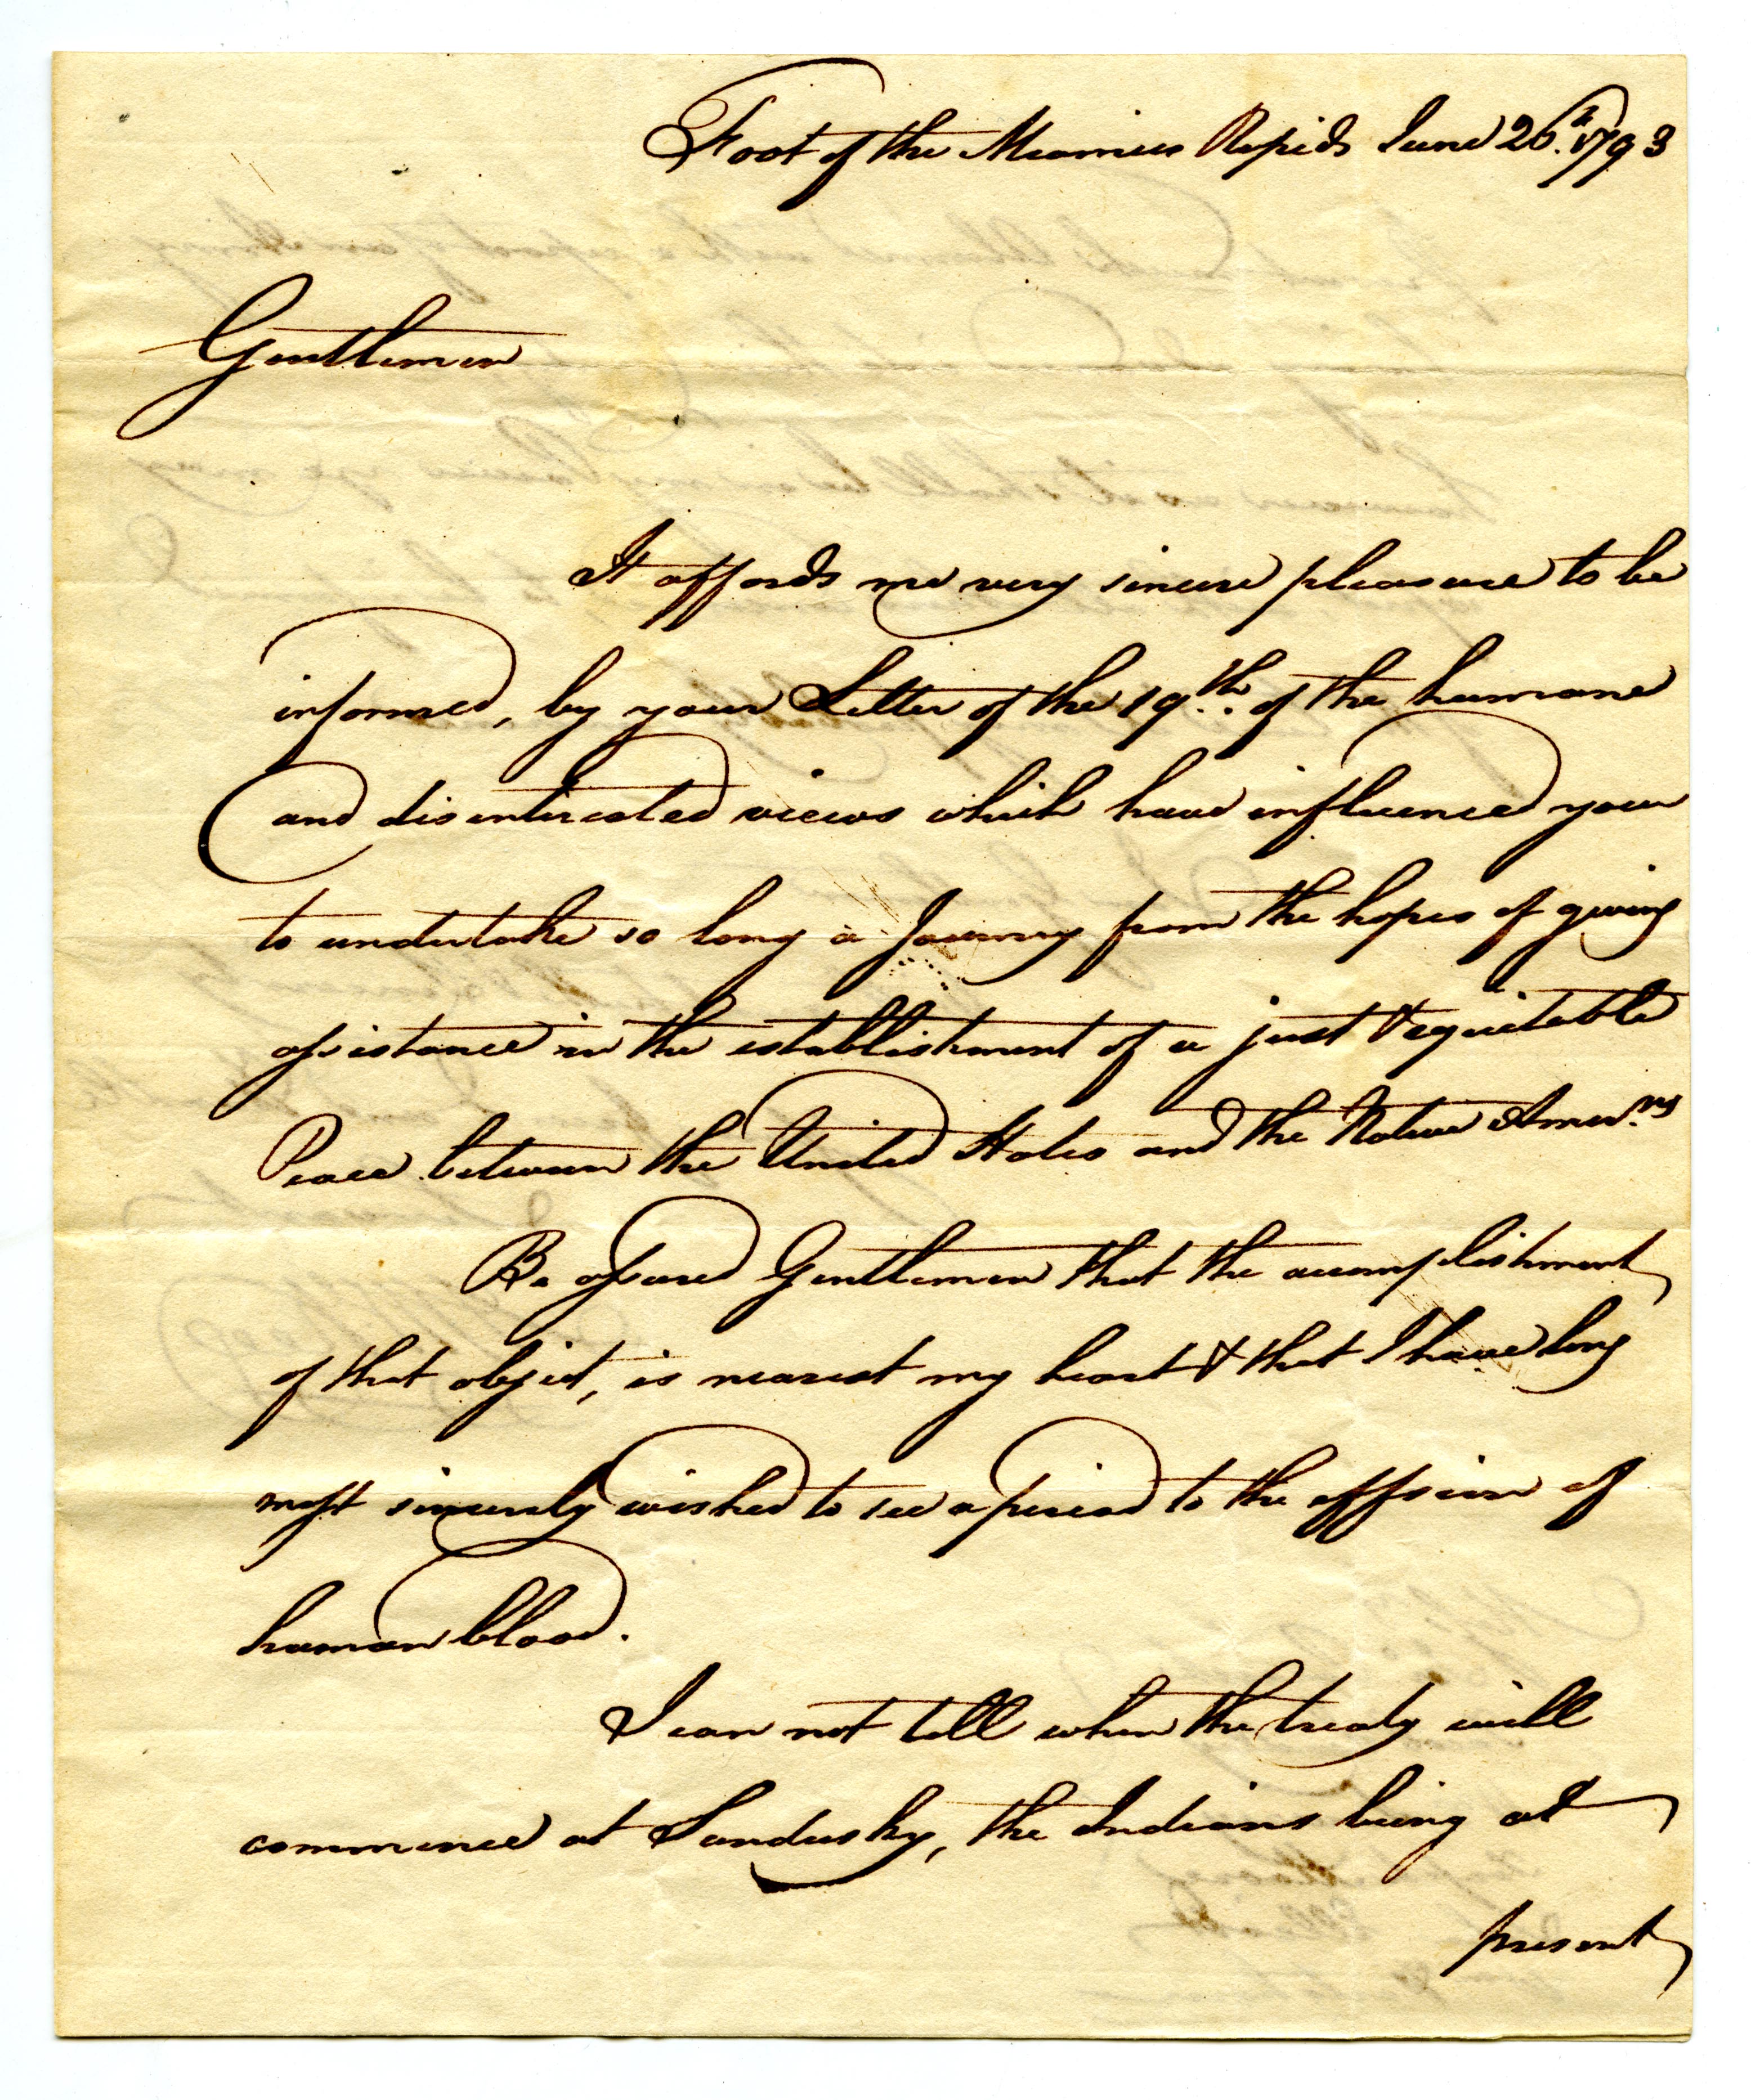 Foot of the Miamies Rapids June 26.th 1793
Gentlemen
It affords me very sincere pleasure to be
informed, by your Letter of the 19th. of the humane
and disinterested views which have influenced you
to undertake so long a Journey from the hopes of giving
assistance in the establishment of a just & equitable
Peace between the United States and the Native Amer.ns
Be assured Gentlemen that the accomplishment
of that object, is nearest my heart & that I have long
most sincerely wished to see a period to the effusion of
human blood.
I can not tell when the treaty will
commence at Sandusky, the Indians being at
present